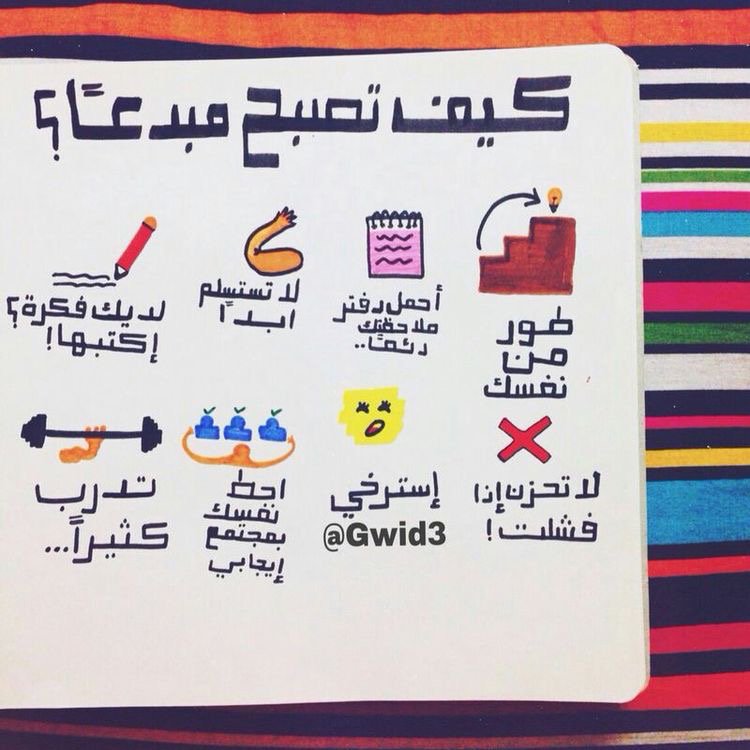 كيف تصبح مبدعًا؟
طور
من
نفسك
أحمل دفتر
ملاحظتك
دئمًا..
لا تستسلم
ابدًا
لديك فكرة؟
إكتبها!
لا تحزن إذا
فشلت!
إسترخي
@Gwid3
احط
نفسك
بمجتمع
إيجابي
تدرب
كثيراً...